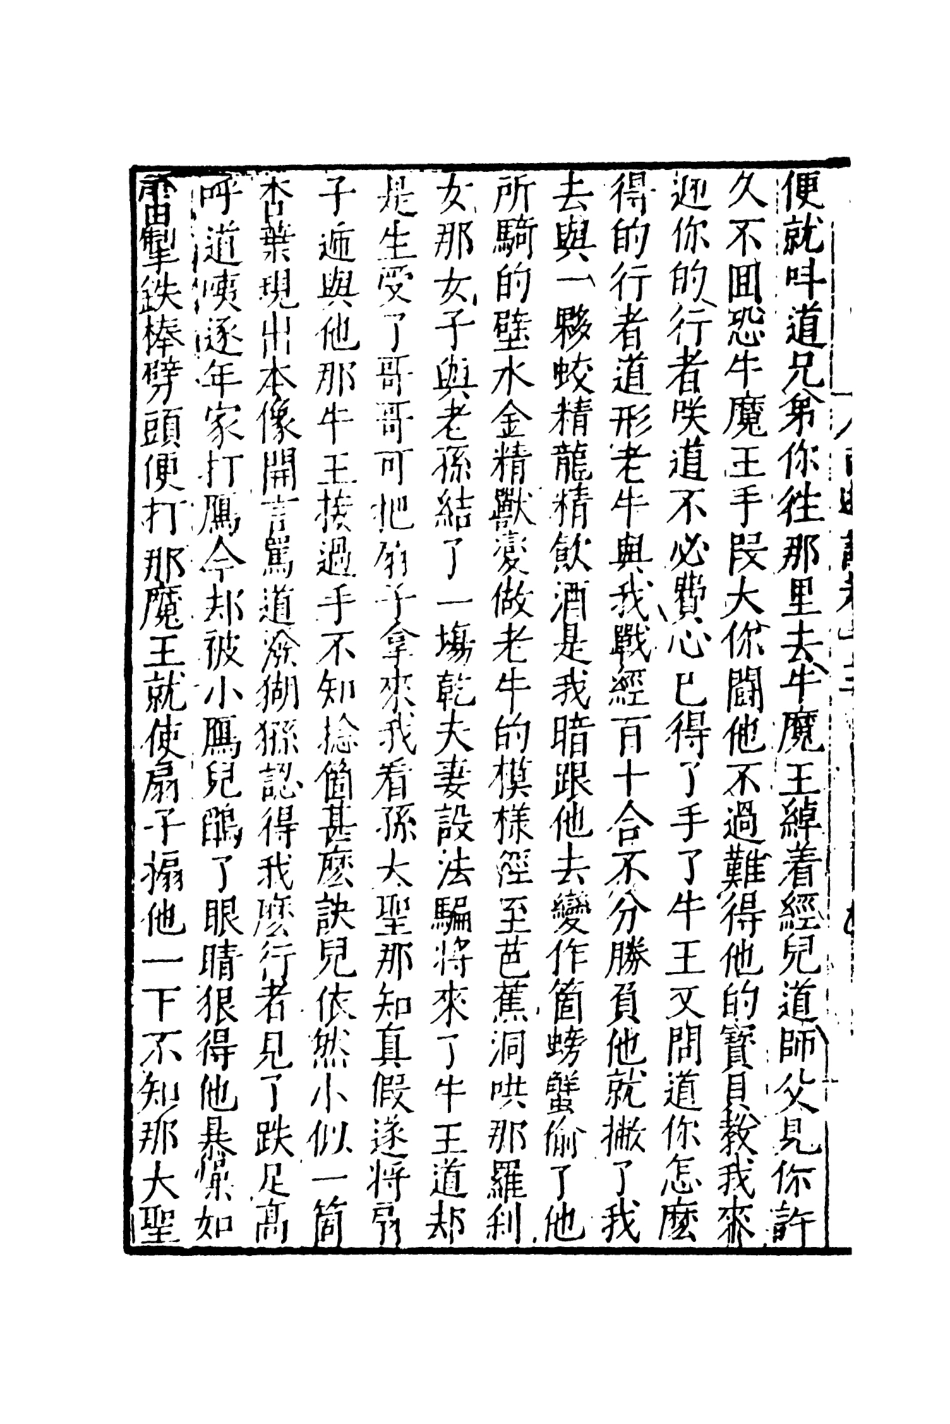 便就呌道兄弟你徃那里去牛魔王綽着經兒道師父見你許
久不囬恐牛魔王手段大你鬪他不過難得他的寶貝教我來
迎你的行者咲道不必費心已得了手了牛王又問道你怎麽
得的行者道形老牛與我戰經百十合不分勝負他就撇了我
去與一夥蛟精龍精飲酒是我暗跟他去變作箇螃蟹偷了他
所騎的壁水金精獸变做老牛的模樣徑至芭蕉洞哄那羅刹
女那女子與老孫結了一塲乾夫妻設法騙將來了牛王道却
是生受了哥哥可把扇子拿來我看孫大聖那知真假遂將扇
子逓與他那牛王接過手不知捻箇甚麽訣兒依然小似一箇
杏葉現出本像開言罵道潑猢猻認得我麽行者見了跌足高
呼道咦逐年家打鴈今却被小鴈兒鵮了眼睛狠得他暴懆如
雷掣鉄棒劈頭便打那魔王就使扇子搧他一下不知那大聖